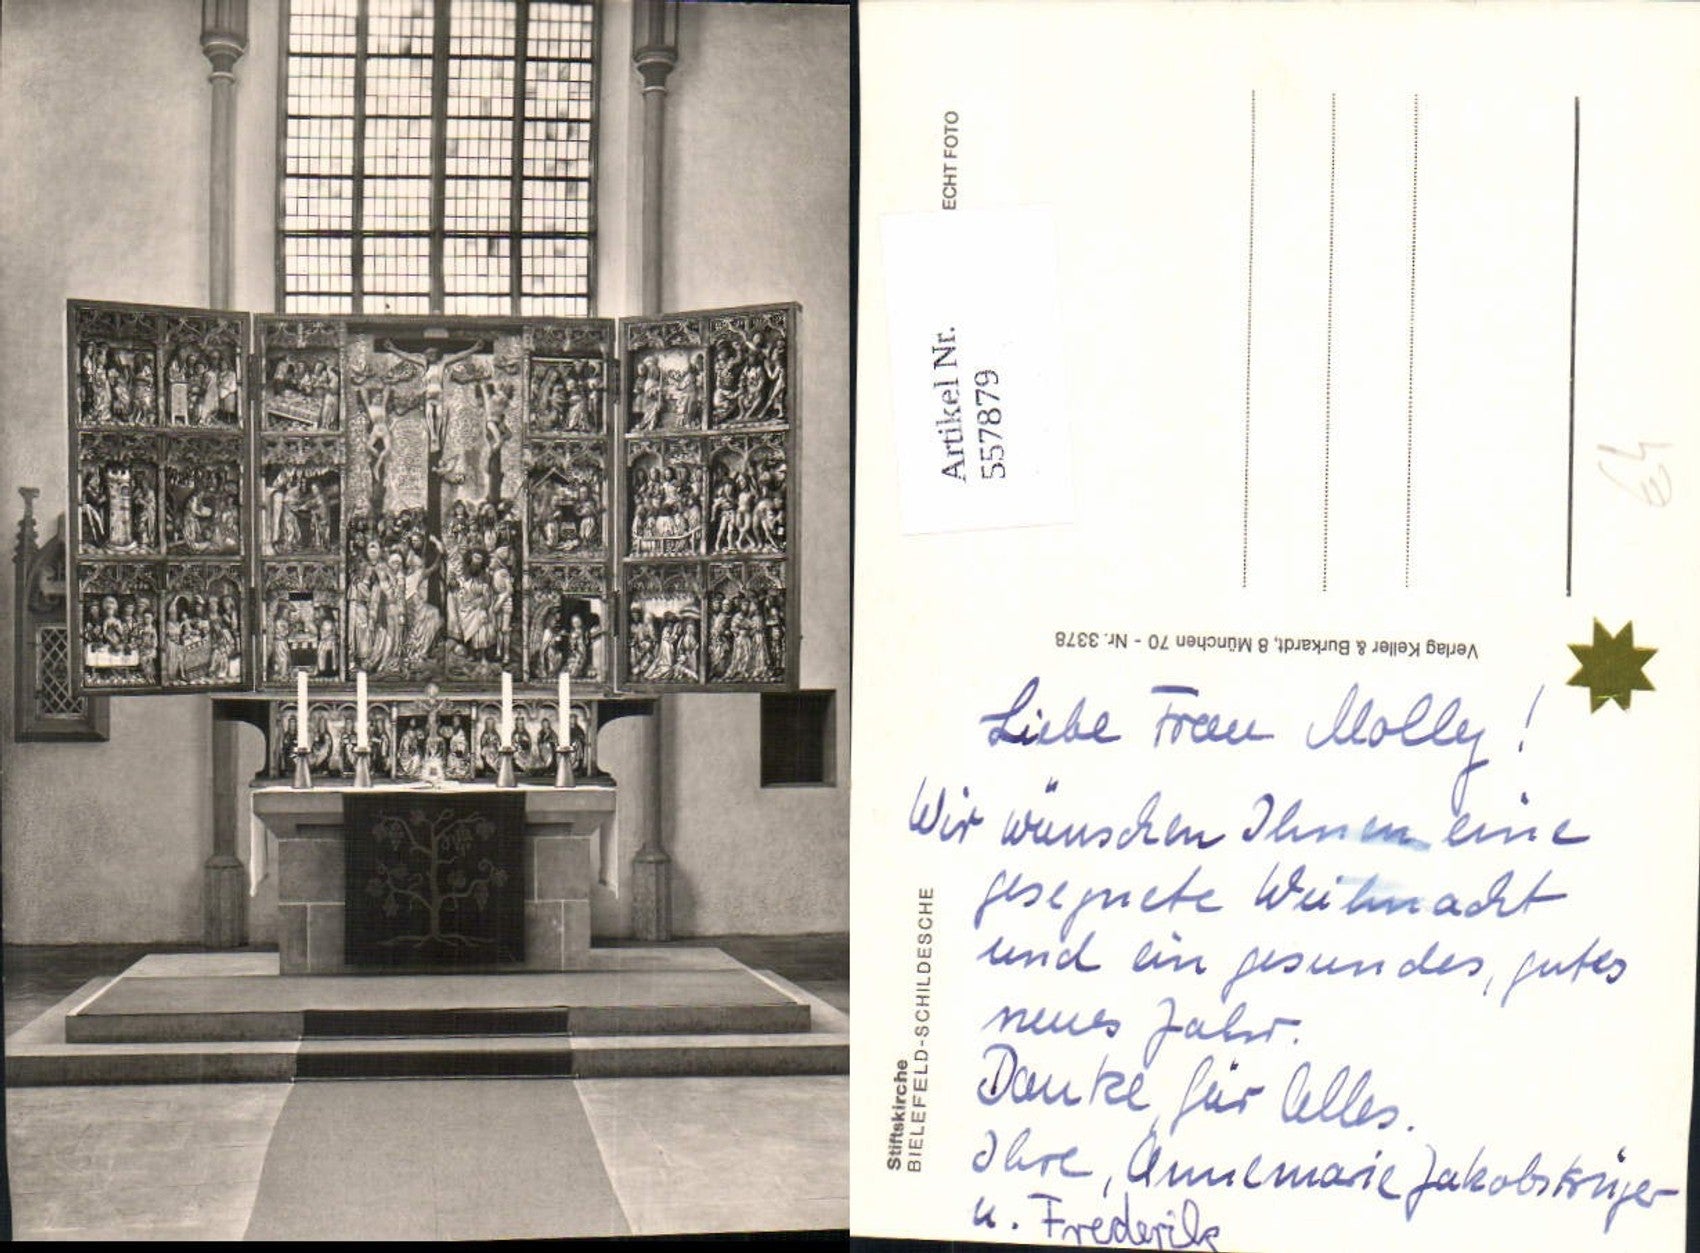 ECHT FOTO
Artikel Nr.
557879
Verlag Keller & Burkardt, 8 München 70 - Nr. 3378
Stiftskirche
BIELEFELD-SCHILDESCHE
Liebe Frau Molly!
Wir wünschen Ihnen eine
gesegnete Weihnacht
und ein gesundes, gutes
neues Jahr.
Danke für Alles.
Ihre, Annemarie Jakobskrüger
u. Frederik